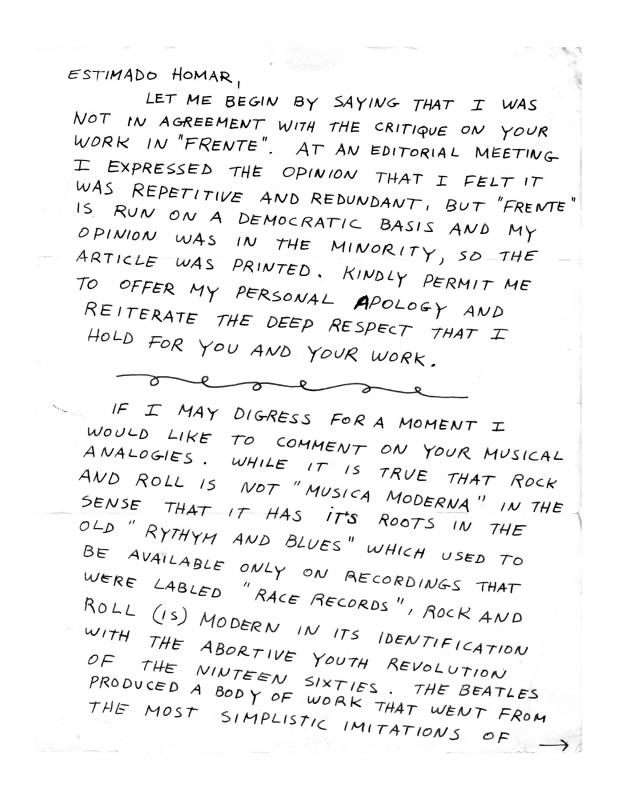 ESTIMADO HOMAR,
LET ME BEGIN BY SAYING THAT I WAS
NOT IN AGREEMENT WITH THE CRITIQUE ON YOUR
WORK IN "FRENTE". AT AN EDITORIAL MEETING
I EXPRESSED THE OPINION THAT I FELT IT
WAS REPETITIVE AND REDUNDANT, BUT "FRENTE"
IS RUN ON A DEMOCRATIC BASIS AND MY
OPINION WAS IN THE MINORITY, SO THE
ARTICLE WAS PRINTED. KINDLY PERMIT ME
TO OFFER MY PERSONAL APOLOGY AND
REITERATE THE DEEP RESPECT THAT I
HOLD FOR YOU AND YOUR WORK.
IF I MAY DIGRESS FOR A MOMENT I
WOULD LIKE TO COMMENT ON YOUR MUSICAL
ANALOGIES. WHILE IT IS TRUE THAT ROCK
AND ROLL IS NOT "MUSICA MODERNA" IN THE
SENSE THAT IT HAS IT'S ROOTS IN THE
OLD "RYTHYM AND BLUES" WHICH USED TO
BE AVAILABLE ONLY ON RECORDINGS THAT
WERE LABLED "RACE RECORDS", ROCK AND
ROLL (IS) MODERN IN ITS IDENTIFICATION
WITH THE ABORTIVE YOUTH REVOLUTION
OF THE NINTEEN SIXTIES. THE BEATLES
PRODUCED A BODY OF WORK THAT WENT FROM
THE MOST SIMPLISTIC IMITATIONS OF →